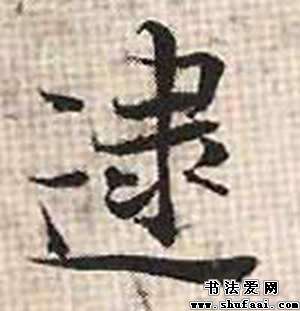 逮
书法爱网
www.shufaai.com